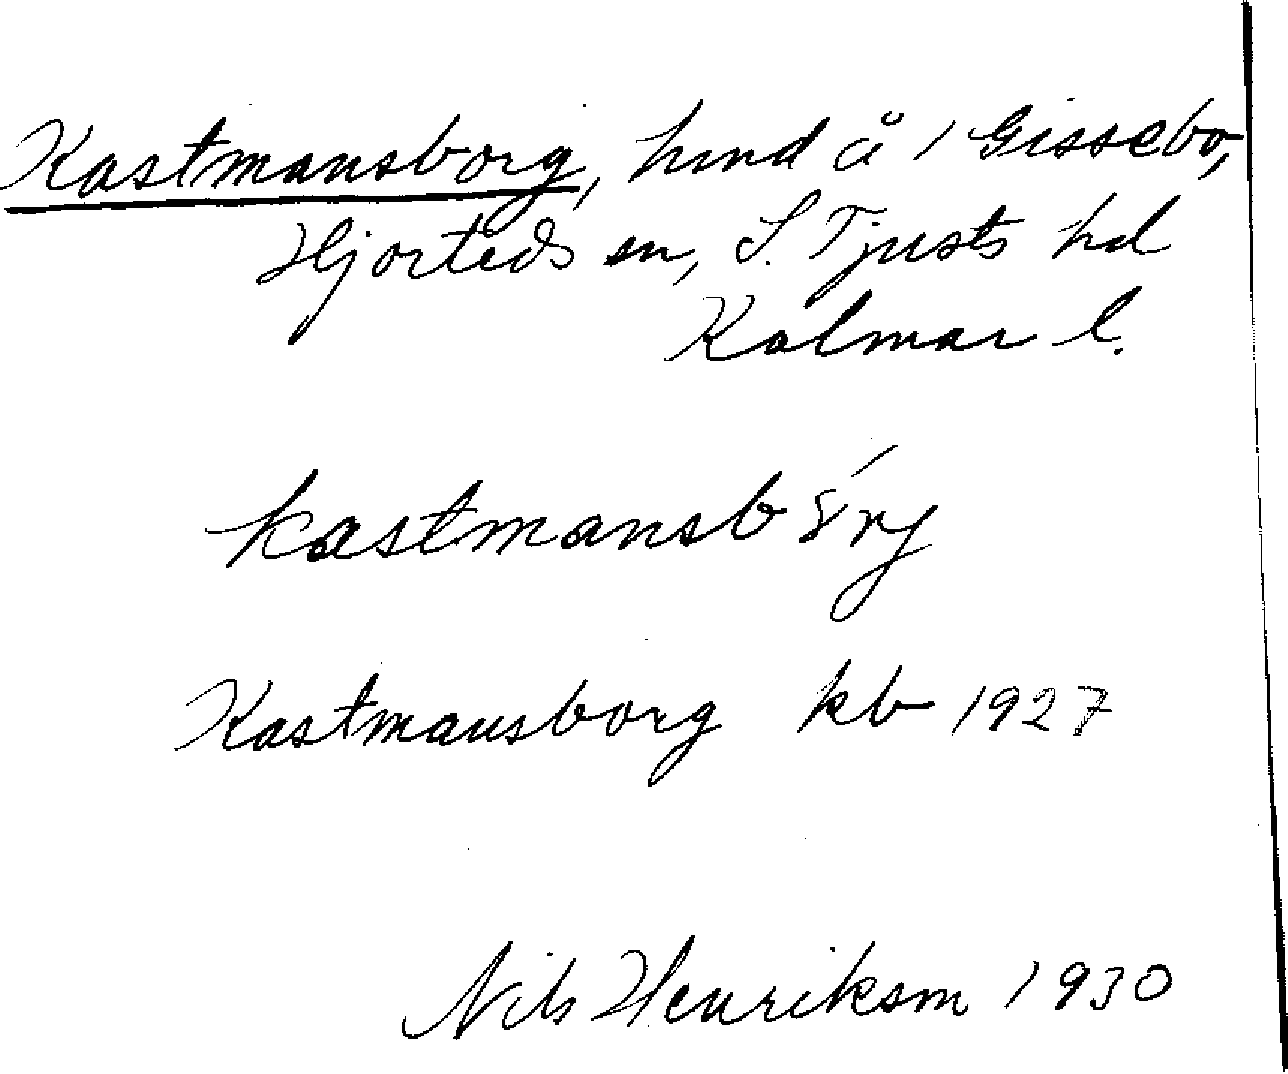 Kastmansborg, hmd å 1 Gissebo,
Hjorteds sn, S. Tjusts hd
Kalmar l.
kastmansb
Kastmansborg kb 1927
Nils Henrikson 1930